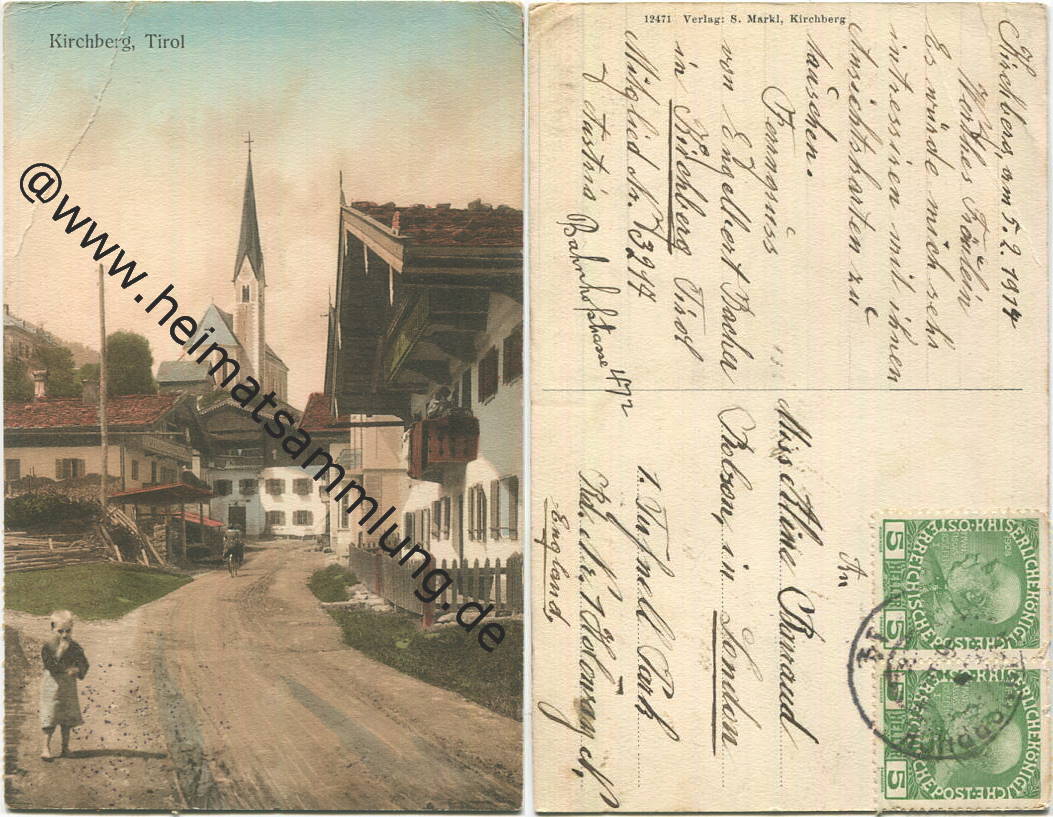 Kirchberg, Tirol
@www.heimatsammlung.de
12471 Verlag: S. Markl, Kirchberg
Kirchberg, am 5.2.1914
Werthes Fräulein
Es würde mich sehr
intressiren mit ihnen
Ansichtskarten zu
tauschen.
Ferngruss
von Engelbert Bacher
in Kirchberg Tirol
Mitglied Nr. 73217
Austria Bahnhofstrasse
An
Miss Aline Baraud
in London
1. Tufnell Park
Rd. N. Holoway N.
England
5 5
HELLER
KAISERLICHE KÖNIGLICHE
ÖSTERREICHISCHE POST
5 5
HELLER
KAISERLICHE KÖNIGLICHE
ÖSTERREICHISCHE POST